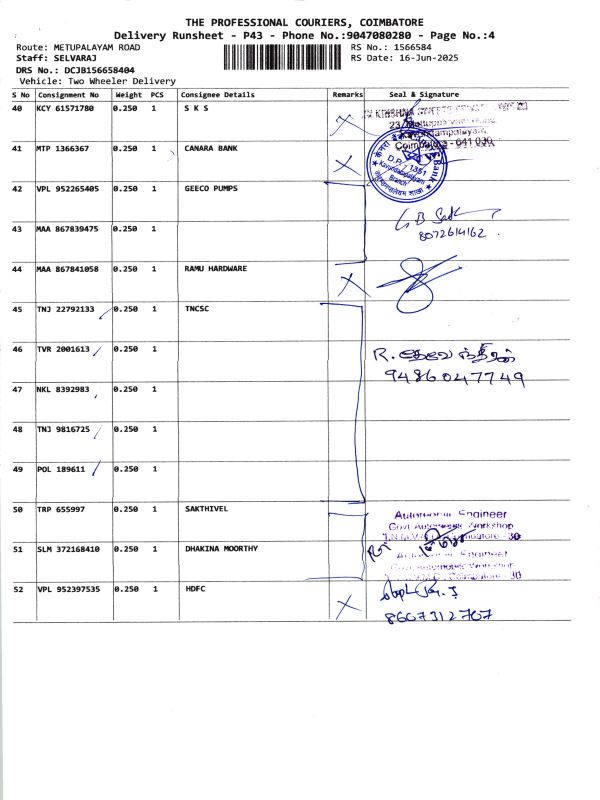 THE PROFESSIONAL COURIERS, COIMBATORE
Delivery Runsheet - P43 - Phone No.:9047080280 - Page No.:4
Route: METUPALAYAM ROAD RS No.: 1566584
Staff: SELVARAJ RS Date: 16-Jun-2025
DRS No.: DCJB156658404
Vehicle: Two Wheeler Delivery
S No Consignment No Weight PCS Consignee Details Remarks Seal & Signature
40 KCY 61571780 0.250 1 S K S
KRISHNA SWEETS
23,
Coimbatore - 641 030
41 MTP 1366367 0.250 1 CANARA BANK
D.P. 1351
Branch
42 VPL 952265405 0.250 1 GEECO PUMPS
43 MAA 867839475 0.250 1
8072614162
44 MAA 867841058 0.250 1 RAMU HARDWARE
45 TNJ 22792133 0.250 1 TNCSC
46 TVR 2001613 0.250 1
R.
9486047749
47 NKL 8392983 0.250 1
48 TNJ 9816725 0.250 1
49 POL 189611 0.250 1
50 TRP 655997 0.250 1 SAKTHIVEL
Automobile Engineer
Govt Automobile Workshop
51 SLM 372168410 0.250 1 DHAKINA MOORTHY
Automobile Engineer
52 VPL 952397535 0.250 1 HDFC
8607312707